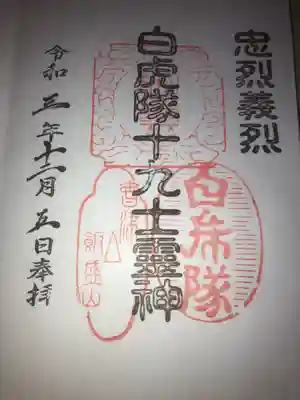 忠烈義烈
白虎隊十九士靈神
白虎隊
飯盛山
令和三年十一月五日奉拝